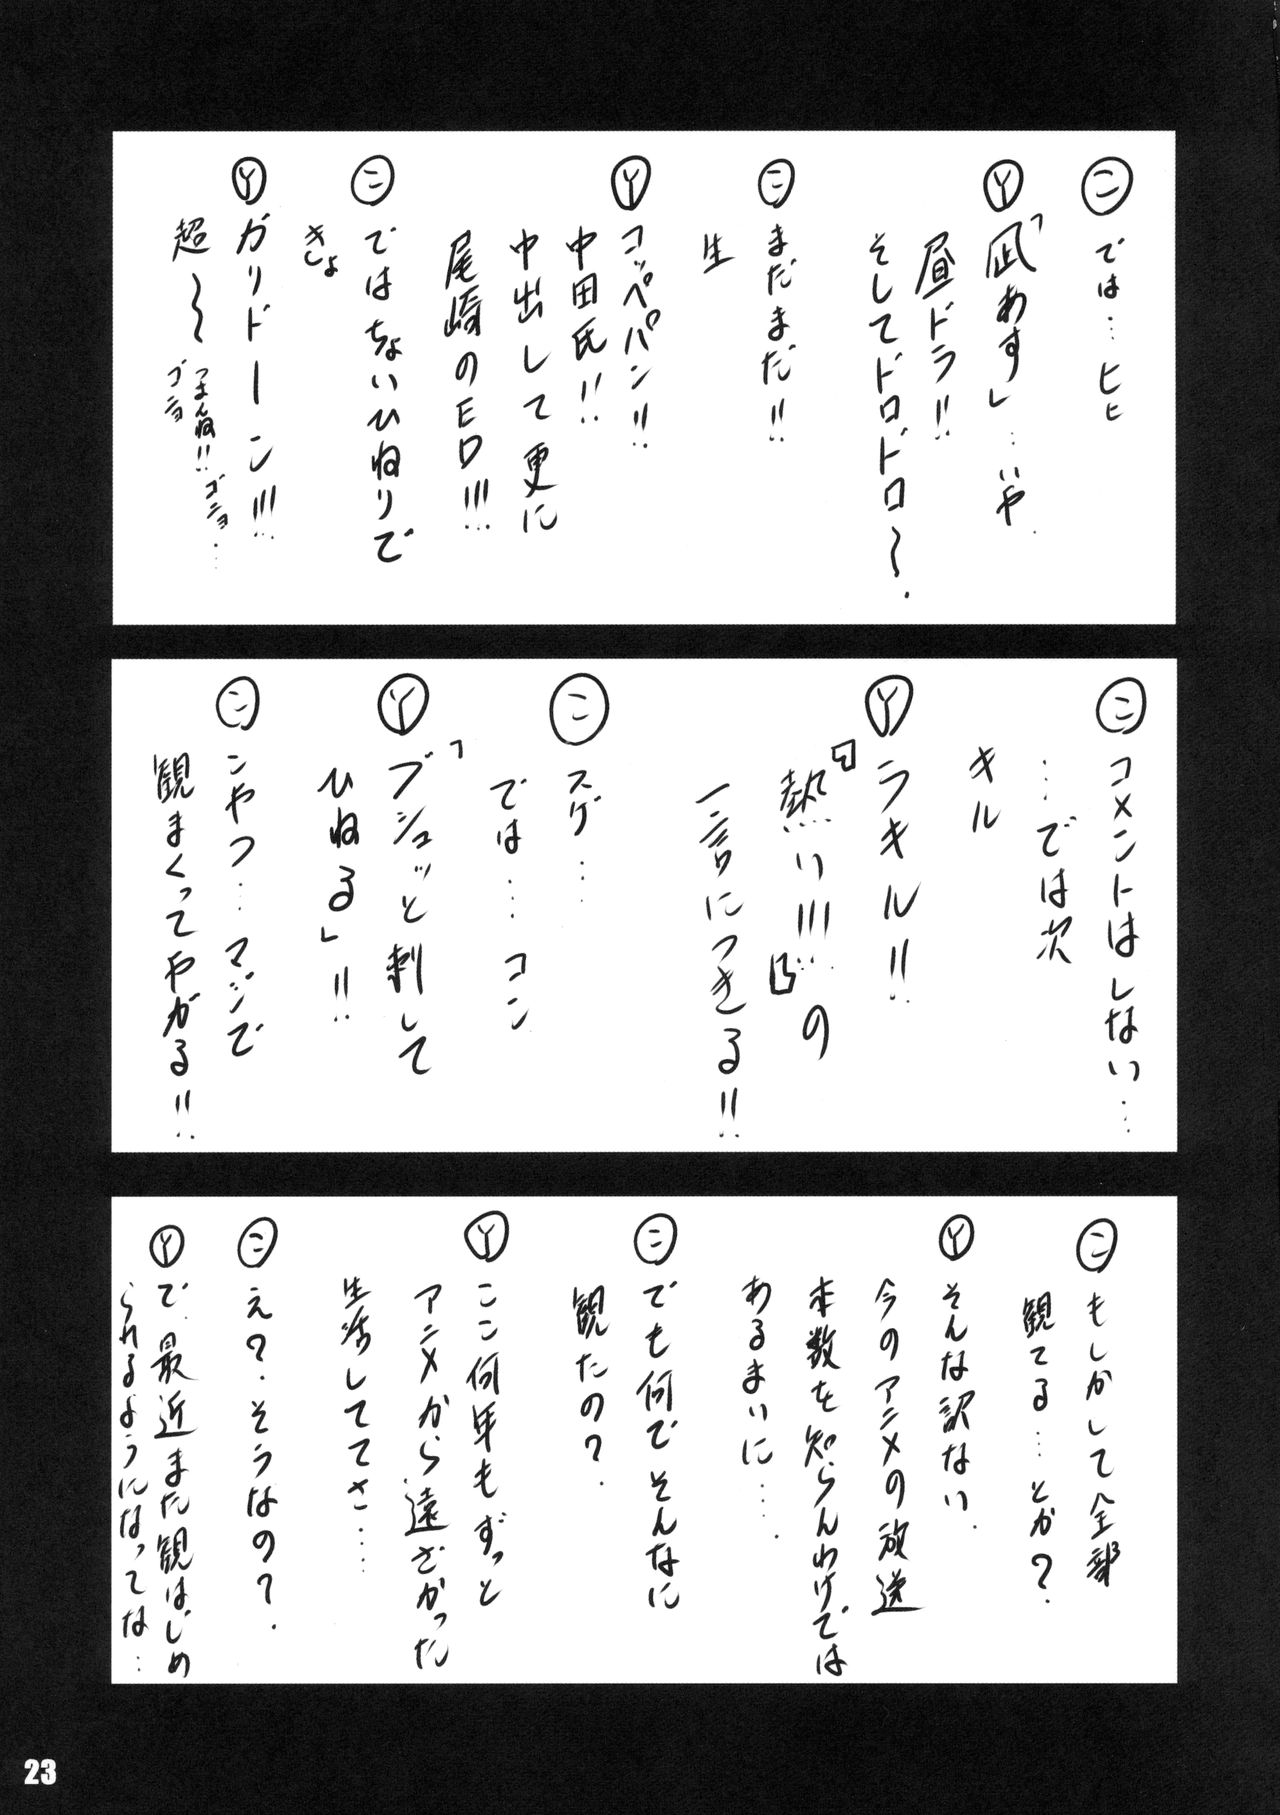 ㋙では…ヒヒ
Ⓨ「凪あす」…いや
昼ドラ!!
そしてドロドロ～.
㋙まだまだ!!
生
Ⓨコッペパン!!
中田氏!!
中出して更に
尾崎のED!!!
㋙ではちょいひねりで
きしょ
Ⓨガリドーン!!!
超～つまんね!!ゴニョゴニョ…
㋙コメントはしない…
…では次
キル
Ⓨラキル!!
『熱い!!!』の
一言につきる!!
㋙スゲ…
では…コン
Ⓨ「ブシュッと刺して
ひねる」!!
㋙こやつ…マジで
観まくってやがる!!
㋙もしかして全部
観てる…とか?
Ⓨそんな訳ない.
今のアニメの放送
本数を知らんわけでは
あるまいに….
㋙でも何でそんなに
観たの?
Ⓨここ何年もずっと
アニメから遠ざかった
生活しててさ…
㋙え?そうなの?.
Ⓨで、最近また観はじめ
られるようになってな…
23